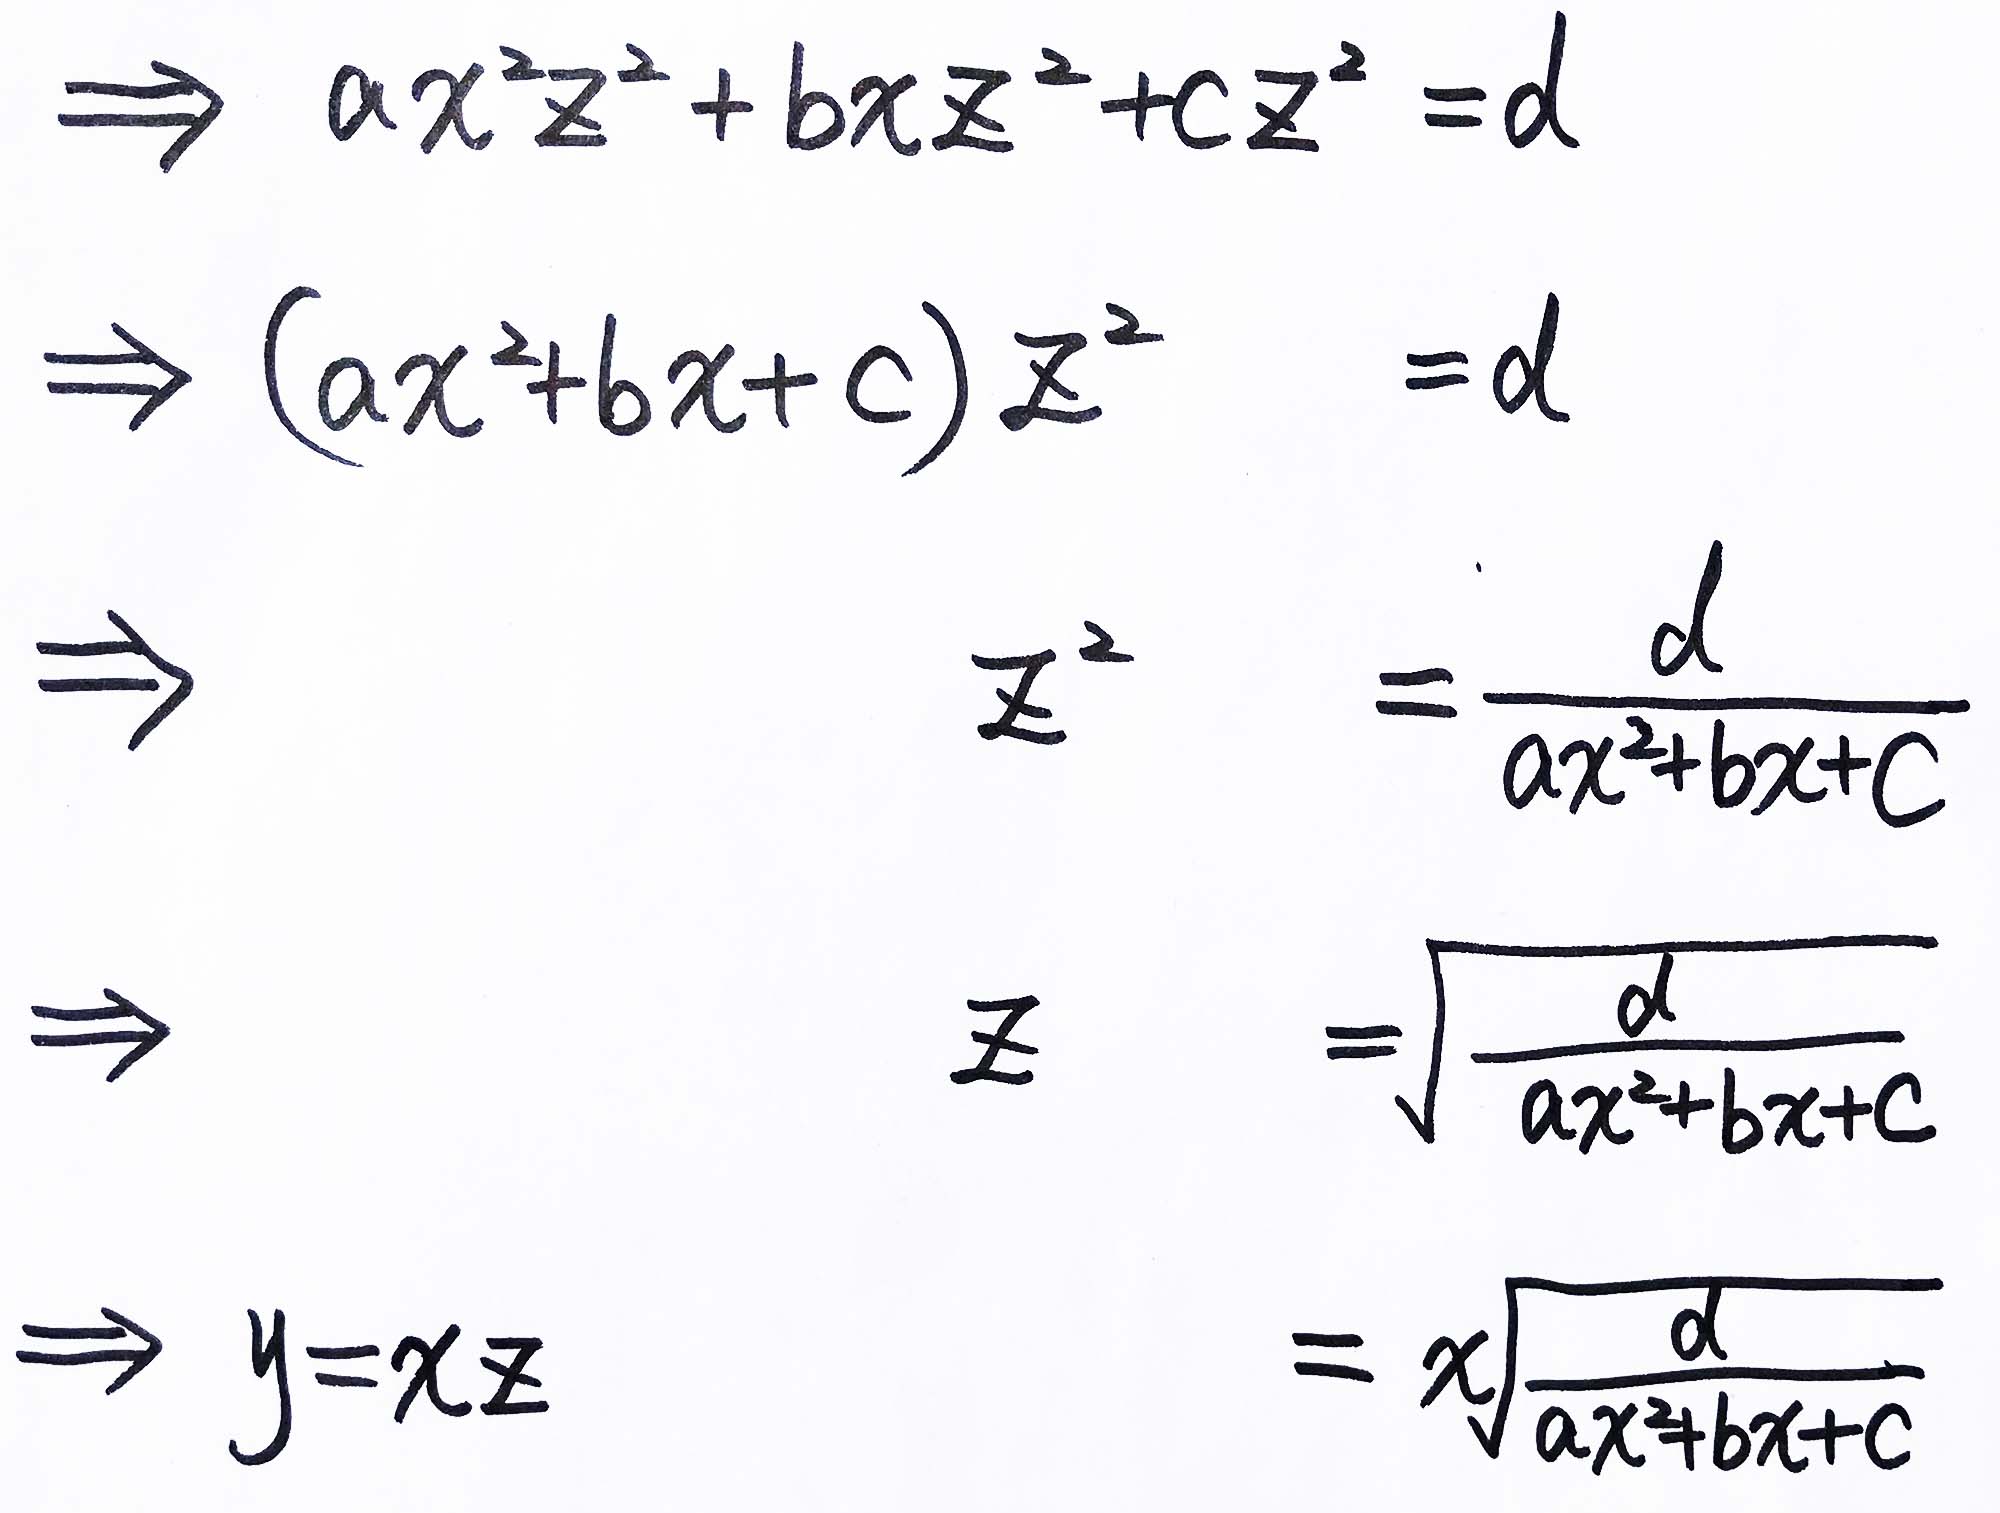 ⇒ ax²z² + bxz² + cz² = d
⇒ (ax² + bx + c)z² = d
⇒ z² = d/(ax² + bx + c)
⇒ z = √(d/(ax² + bx + c))
⇒ y = xz = x√(d/(ax² + bx + c))